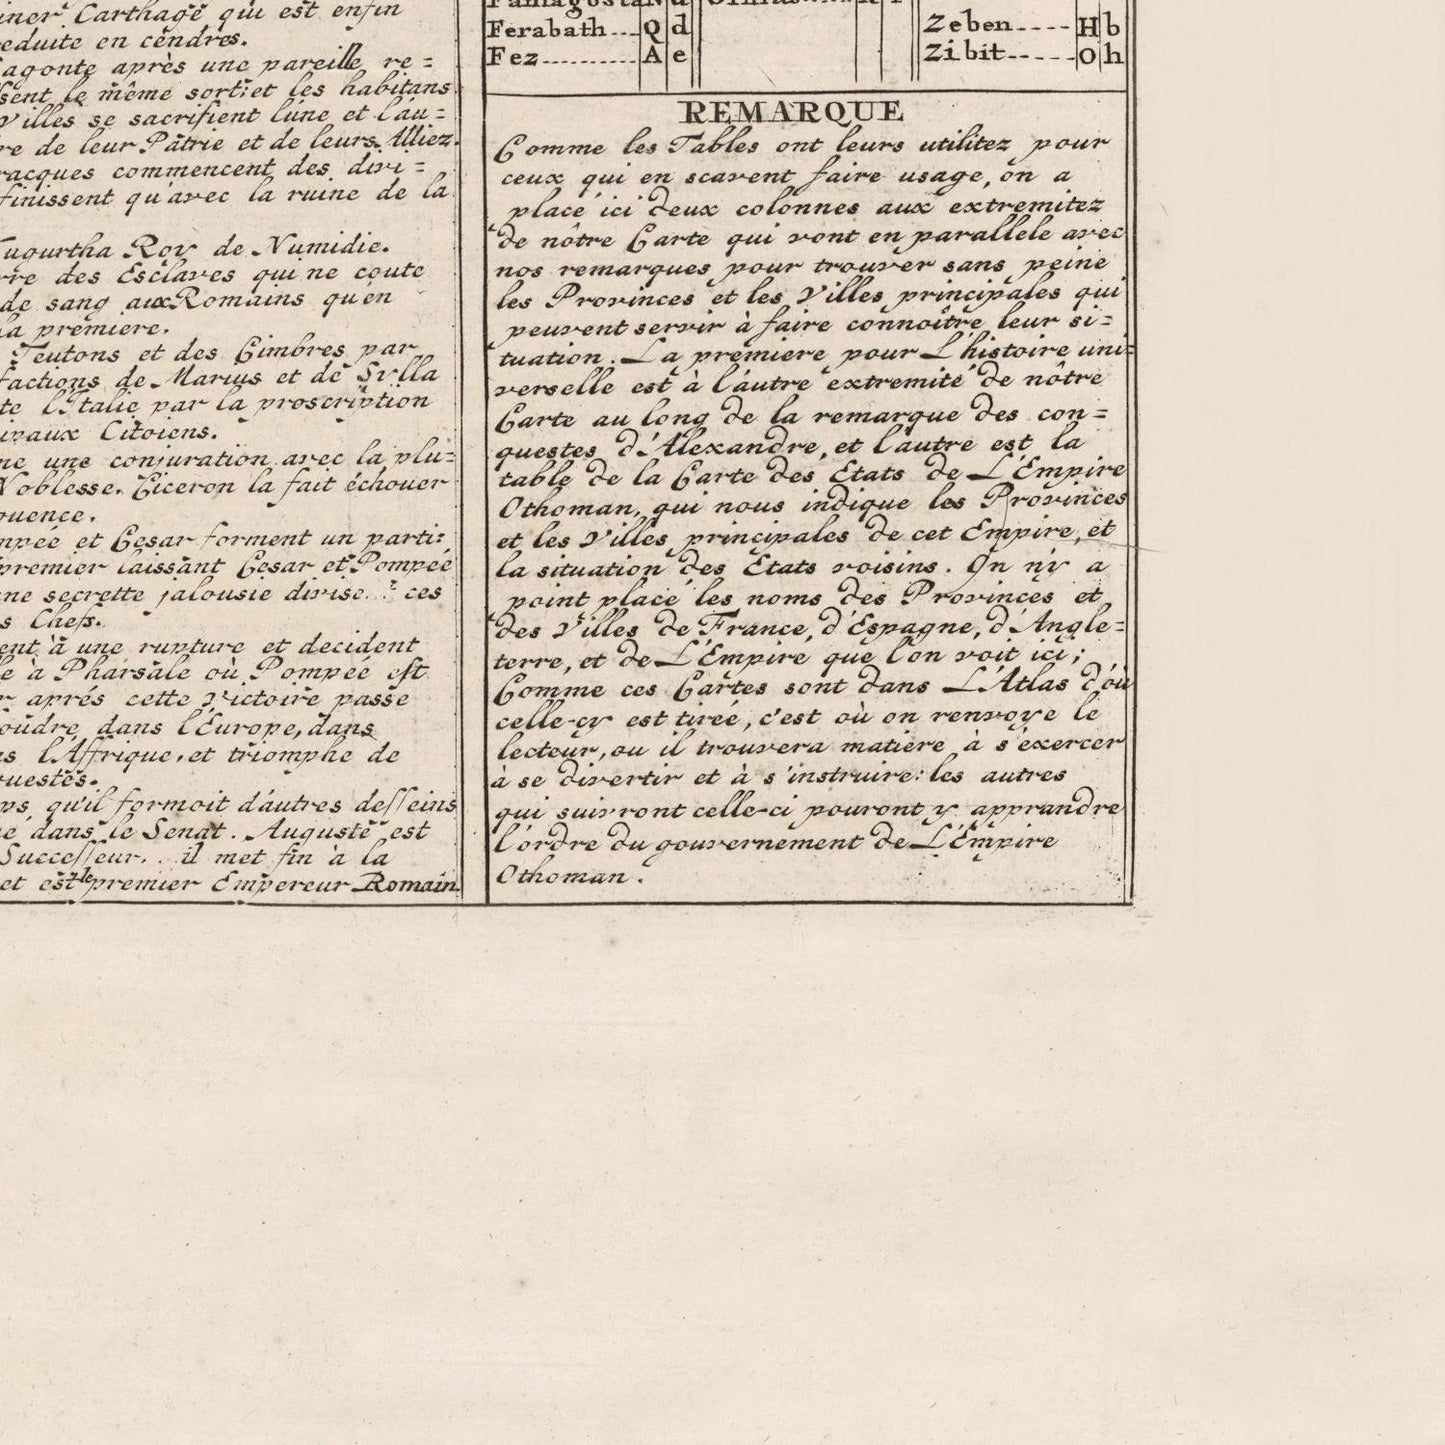 Carthage qui est enfin
eduite en cendres.
agonte après une pareille re =
sent le même sort: et les habitans
Villes se sacrifient l'une et l'au =
re de leur Patrie et de leurs Alliez.
racques commencent des divi =
finissent qu'avec la ruine de la
Iugurtha Roy de Numidie.
rre des Esclaves qui ne coute
de sang aux Romains qu'en
la premiere.
Teutons et des Cimbres par
factions de Marius et de Sylla
te l'Italie par la proscription
ipaux Citoiens.
ne une conjuration avec la plu =
Noblesse. Ciceron la fait échouer
quence.
mpée et Cesar forment un parti:
premier laissant Cesar et Pompée
ne secrette jalousie divise ces
s Chefs.
ent à une rupture et decident
e à Pharsale où Pompée est
r aprés cette Victoire passe
oudre dans l'Europe, dans
s l'Affrique, et triomphe de
questes.
ps, qu'il formoit d'autres desseins
é dans le Senat. Auguste est
Successeur. il met fin à la
et est le premier Empereur Romain.
Famagosta N d
Ferabath... Q d
Fez.......... A e
Zeben.... H b
Zibit...... O h
REMARQUE
Comme les Tables ont leurs utilitez pour
ceux qui en scavent faire usage, on a
placé ici deux colonnes aux extremitez
de nôtre Carte qui vont en parallele avec
nos remarques pour trouver sans peine
les Provinces et les Villes principales qui
peuvent servir à faire connoître leur si =
tuation. La premiere pour L'histoire uni =
verselle est à l'autre extremité de nôtre
Carte au long de la remarque des con =
questes d'Alexandre, et l'autre est la
table de la Carte des Etats de L'Empire
Othoman, qui nous indique les Provinces
et les Villes principales de cet Empire, et
la situation des Etats voisins. On n'y a
point placé les noms des Provinces et
des Villes de France, d'Espagne, d'Angle =
terre, et de L'Empire que l'on voit ici;
Comme ces Cartes sont dans L'Atlas d'où
celle-cy est tirée, c'est où on renvoye le
lecteur, ou il trouvera matiere à s'exercer
à se divertir et à s'instruire: les autres
qui suivront celle-ci pouront y apprandre
l'ordre du gouvernement de L'Empire
Othoman.